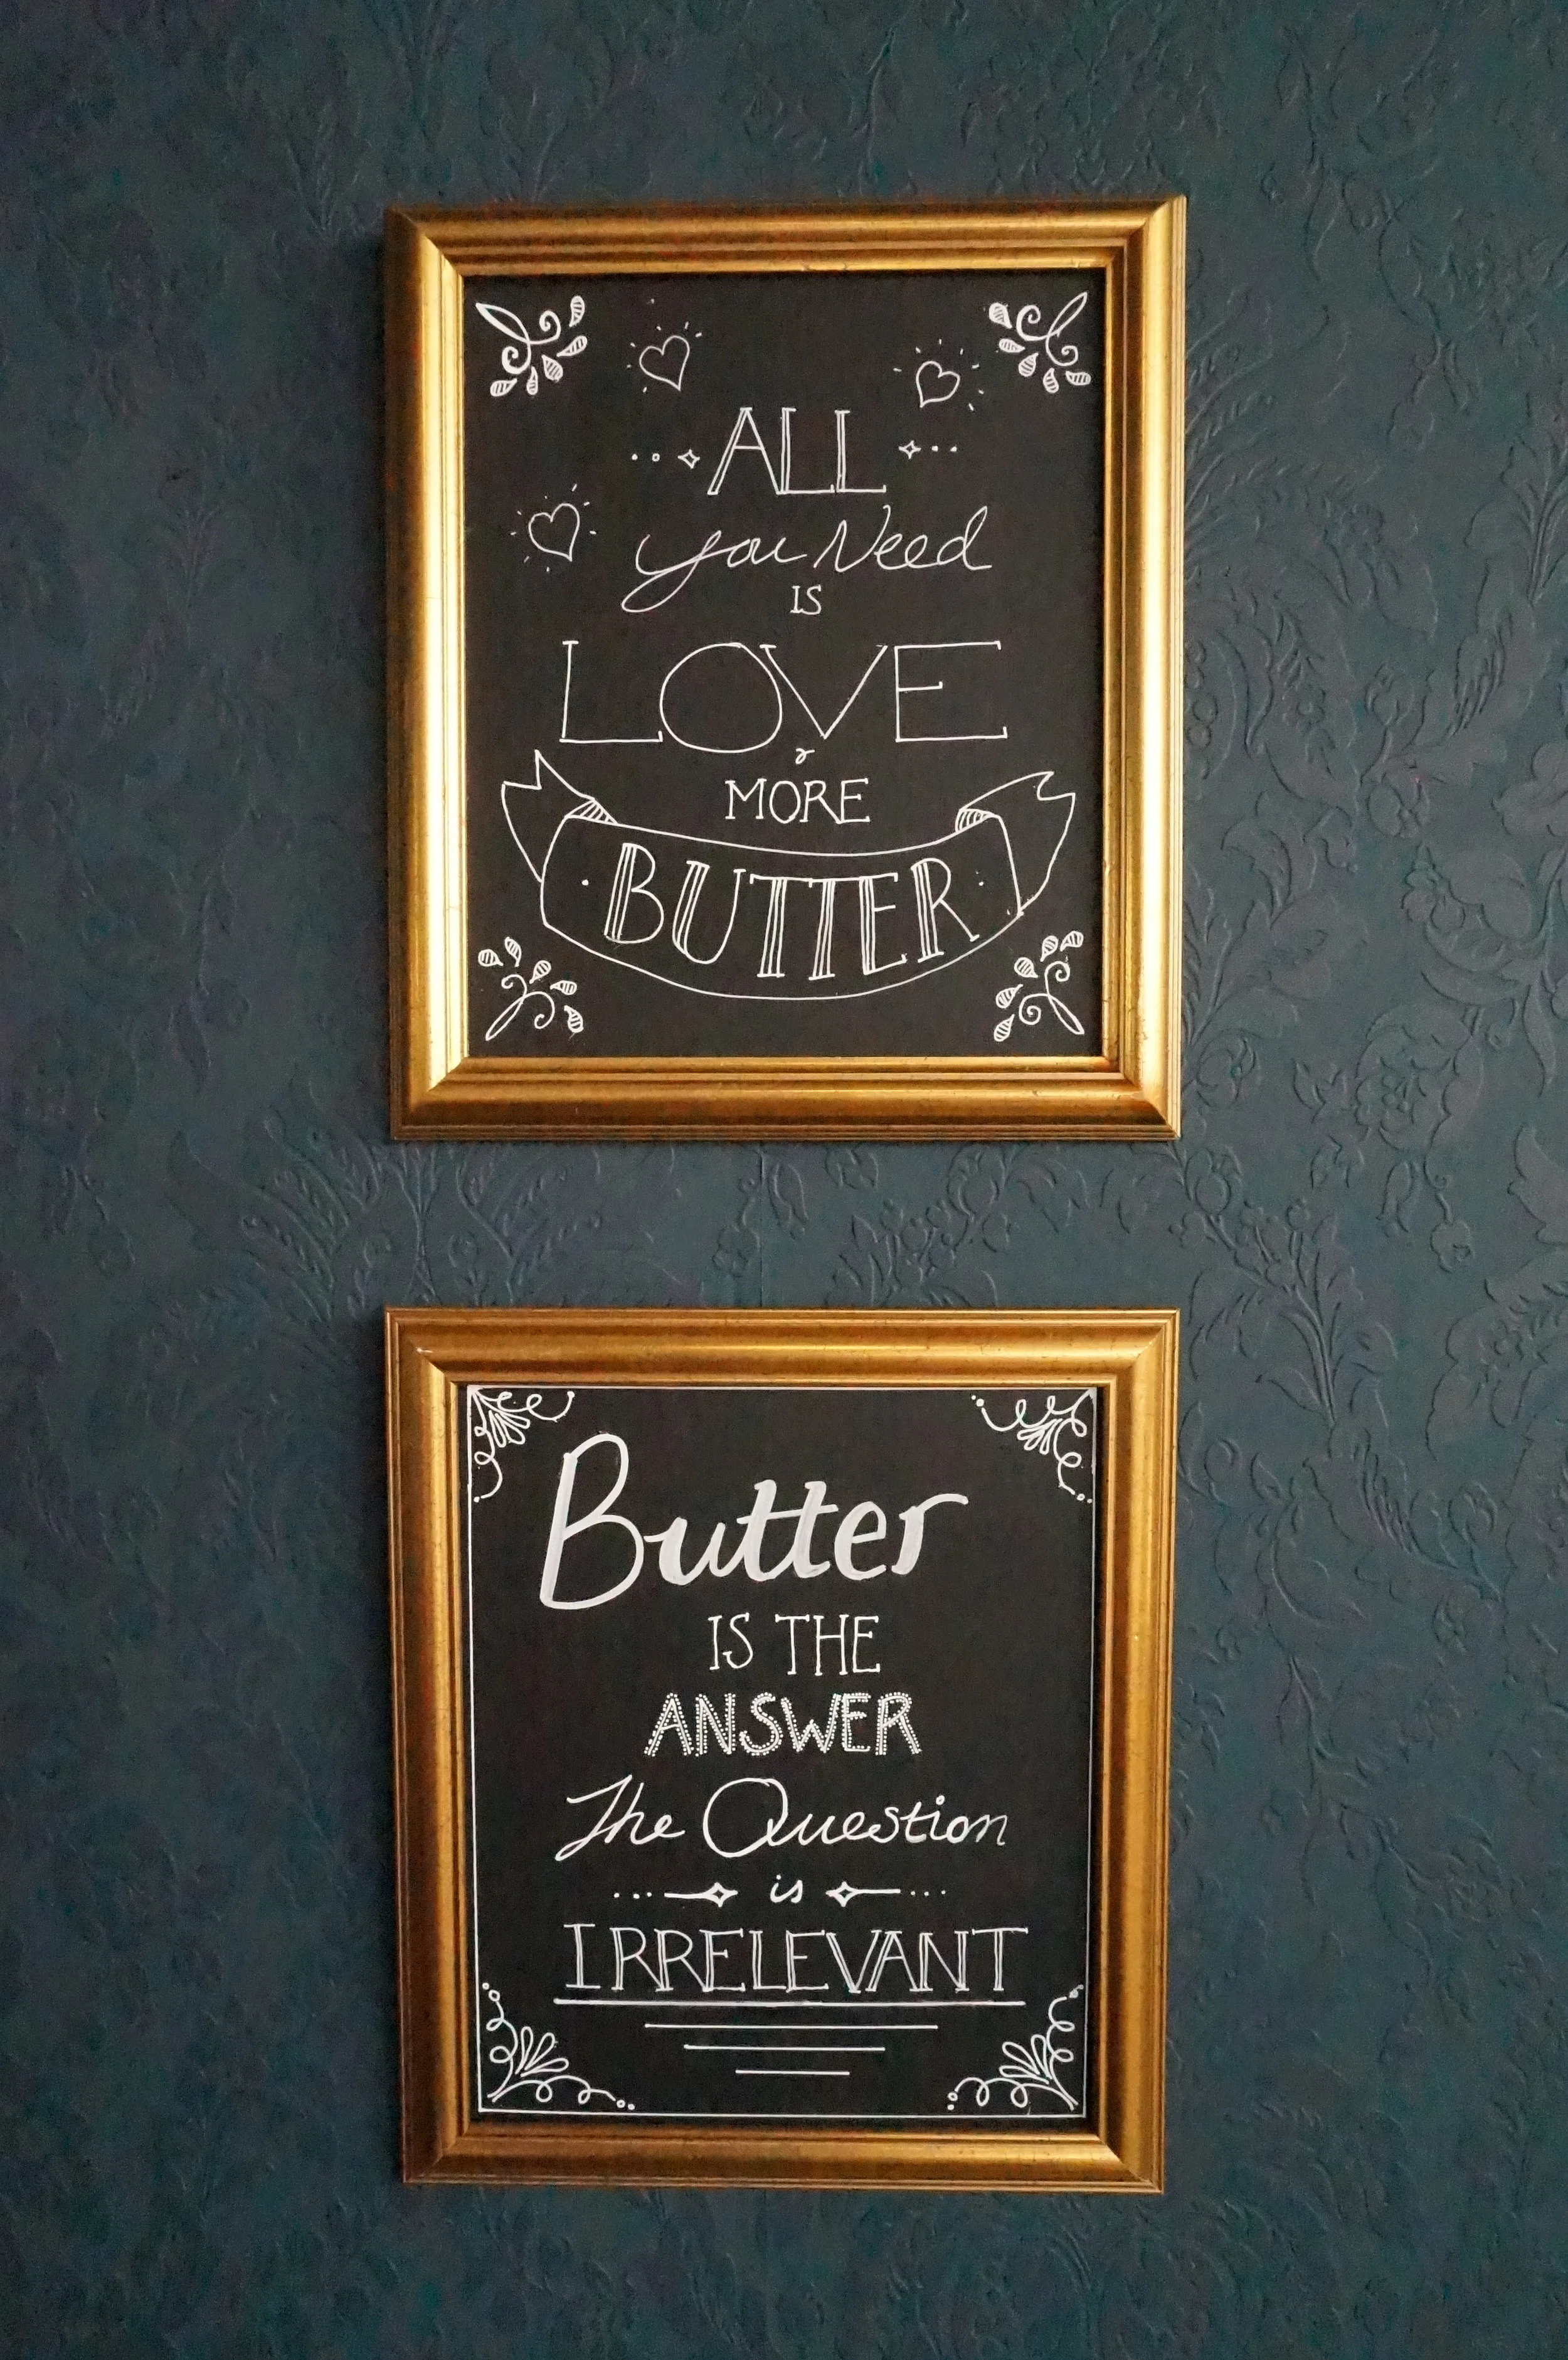 ALL
you Need
IS
LOVE
&
MORE
BUTTER
Butter
IS THE
ANSWER
The Question
is
IRRELEVANT